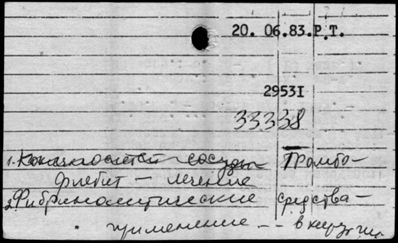 20. 06.83.Р.Т.
2953I
33338
1. Конечностей сосуды Тромбо-
флебит — лечение
2. Фибринолитические средства —
применение -- в хирургии